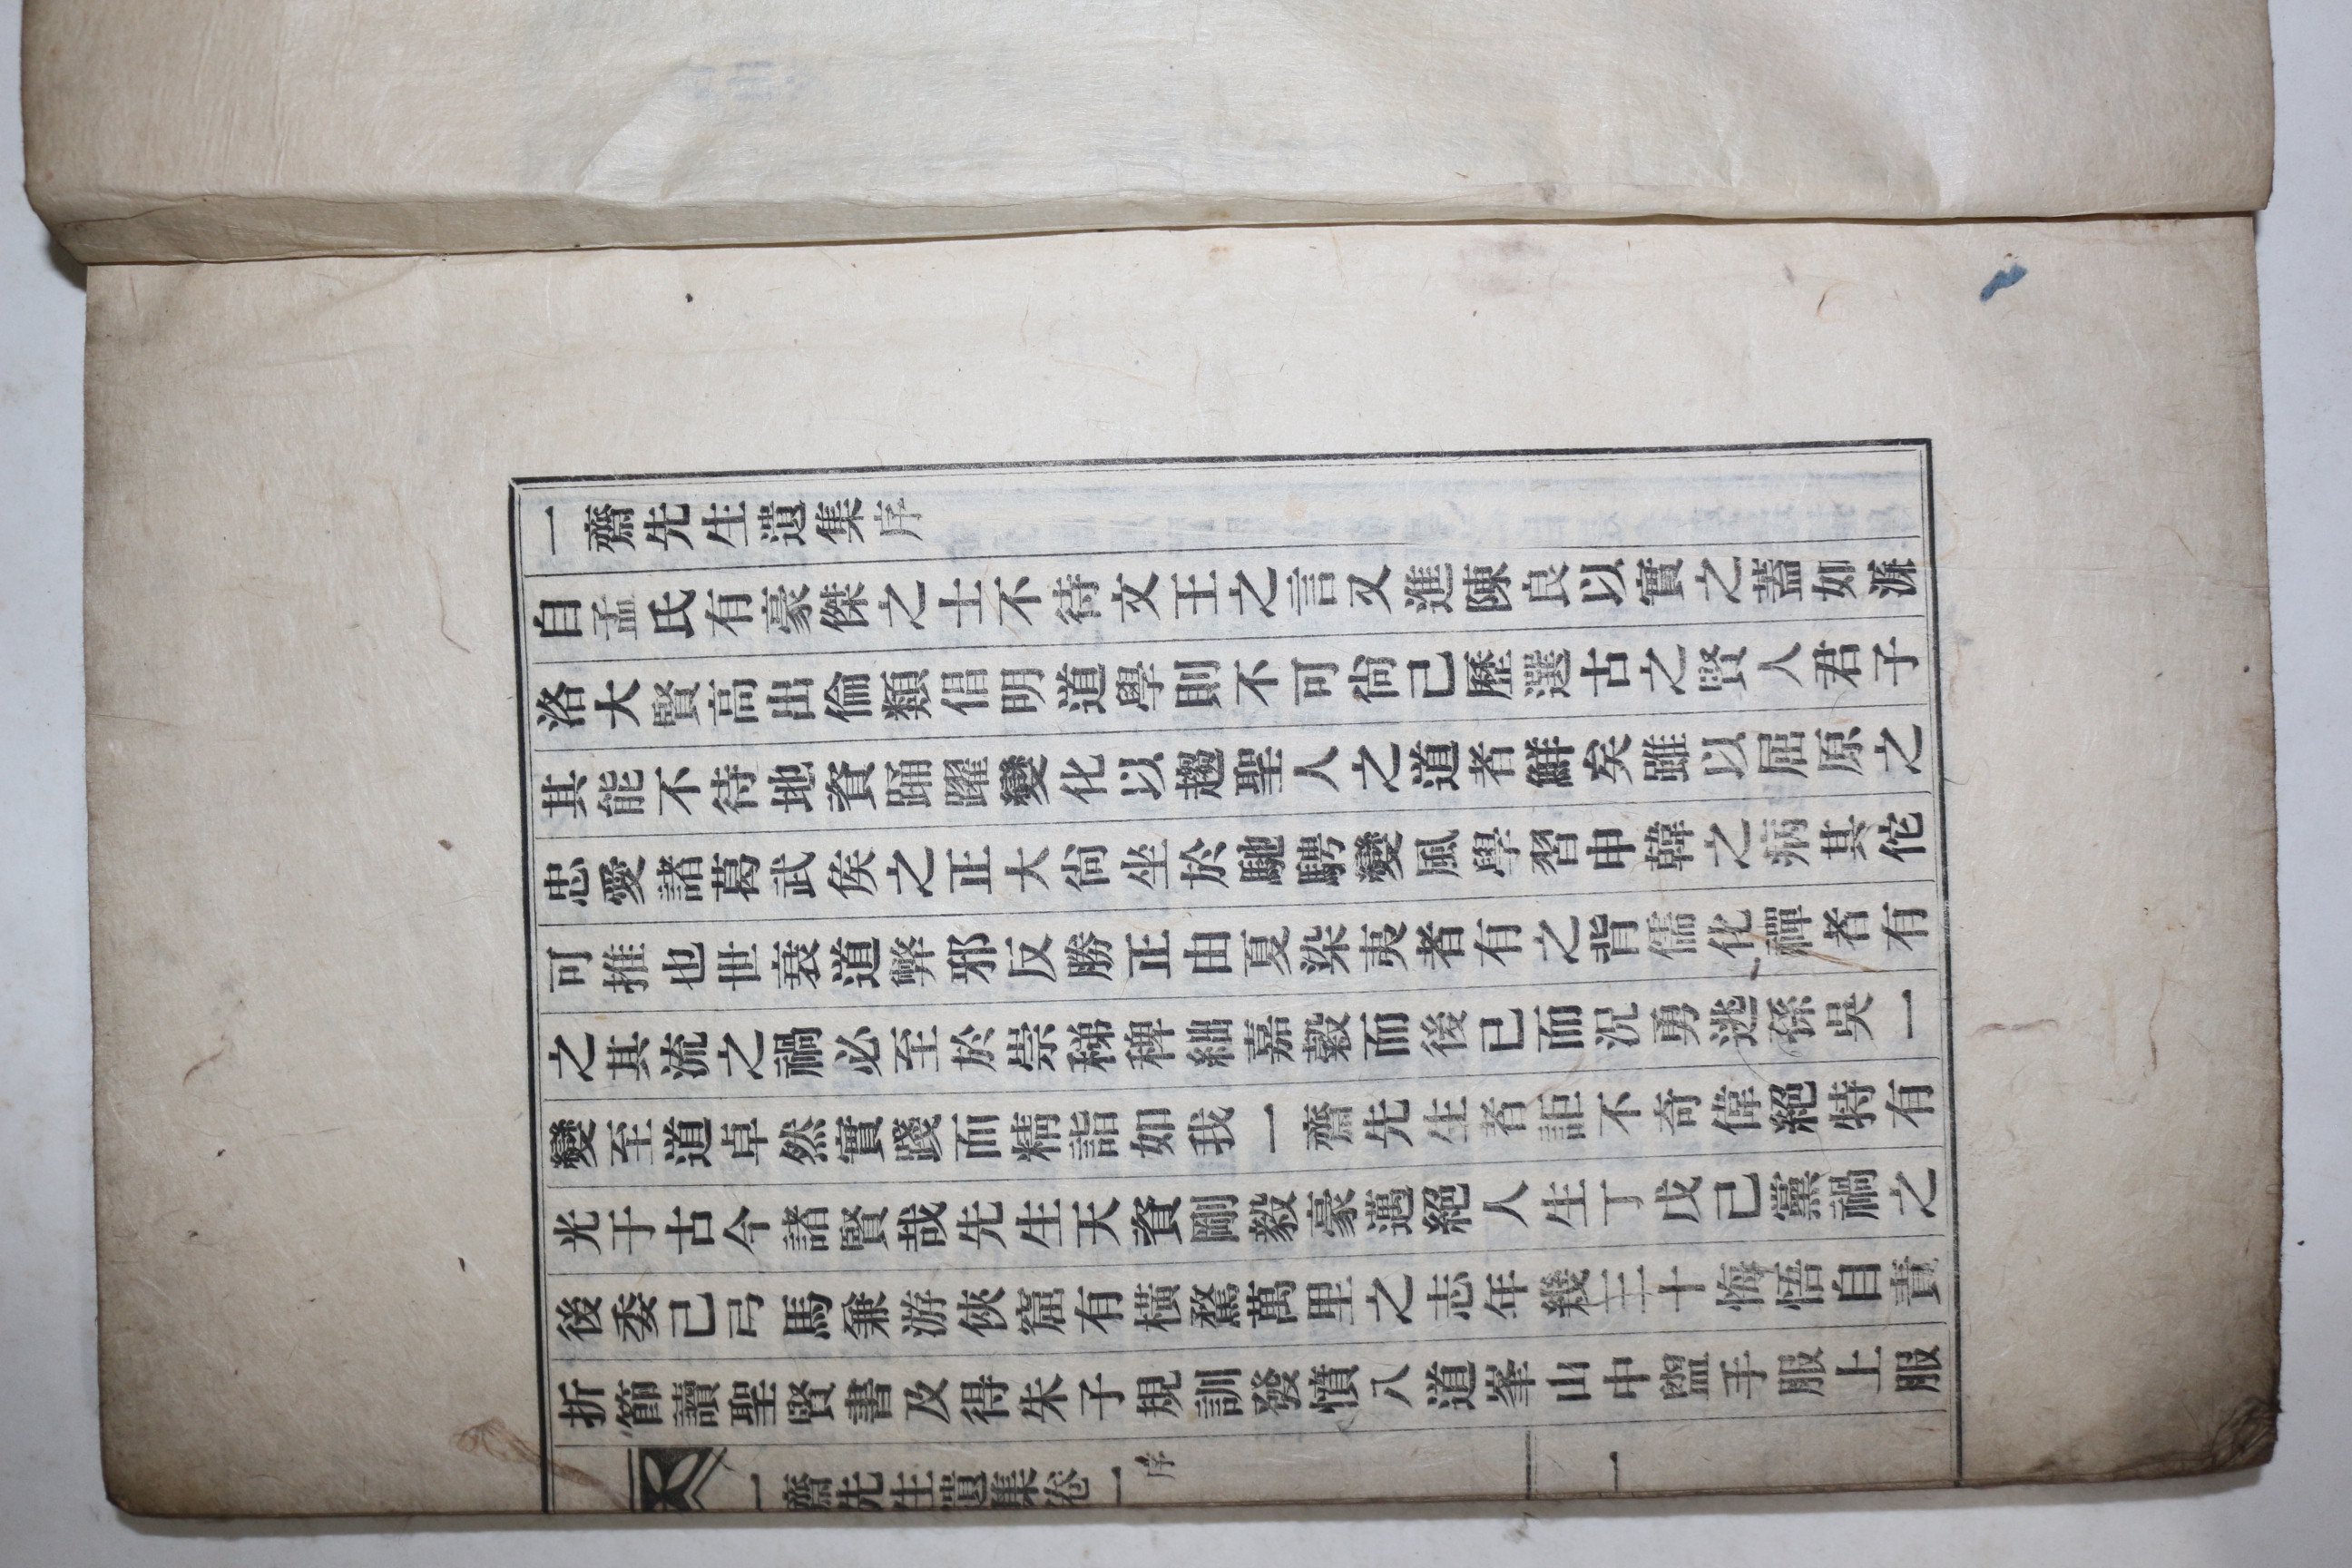 一齋先生遺集序
自孟氏有豪傑之士不待文王之言又進陳良以實之蓋如濂
洛大賢高出倫類倡明道學則不可尙已歷選古之賢人君子
其能不待地資踊躍變化以趨聖人之道者鮮矣雖以屈原之
忠愛諸葛武矦之正大尙坐於馳騁變風學習申韓之病其佗
可推也世衰道弊邪反勝正由夏染夷者有之背儒化禪者有
之其流之禍必至於崇稊稗絀嘉穀而後已而況勇逃孫吳一
變至道卓然實踐而精詣如我一齋先生者詎不奇偉絕特有
光于古今諸賢哉先生天資剛毅豪邁絕人生丁戊己黨禍之
後委己弓馬兼游俠窟有橫騖萬里之志年幾三十悔悟自責
折節讀聖賢書及得朱子規訓發憤八道峯山中盥手服上服
一齋先生遺集卷一 序 一